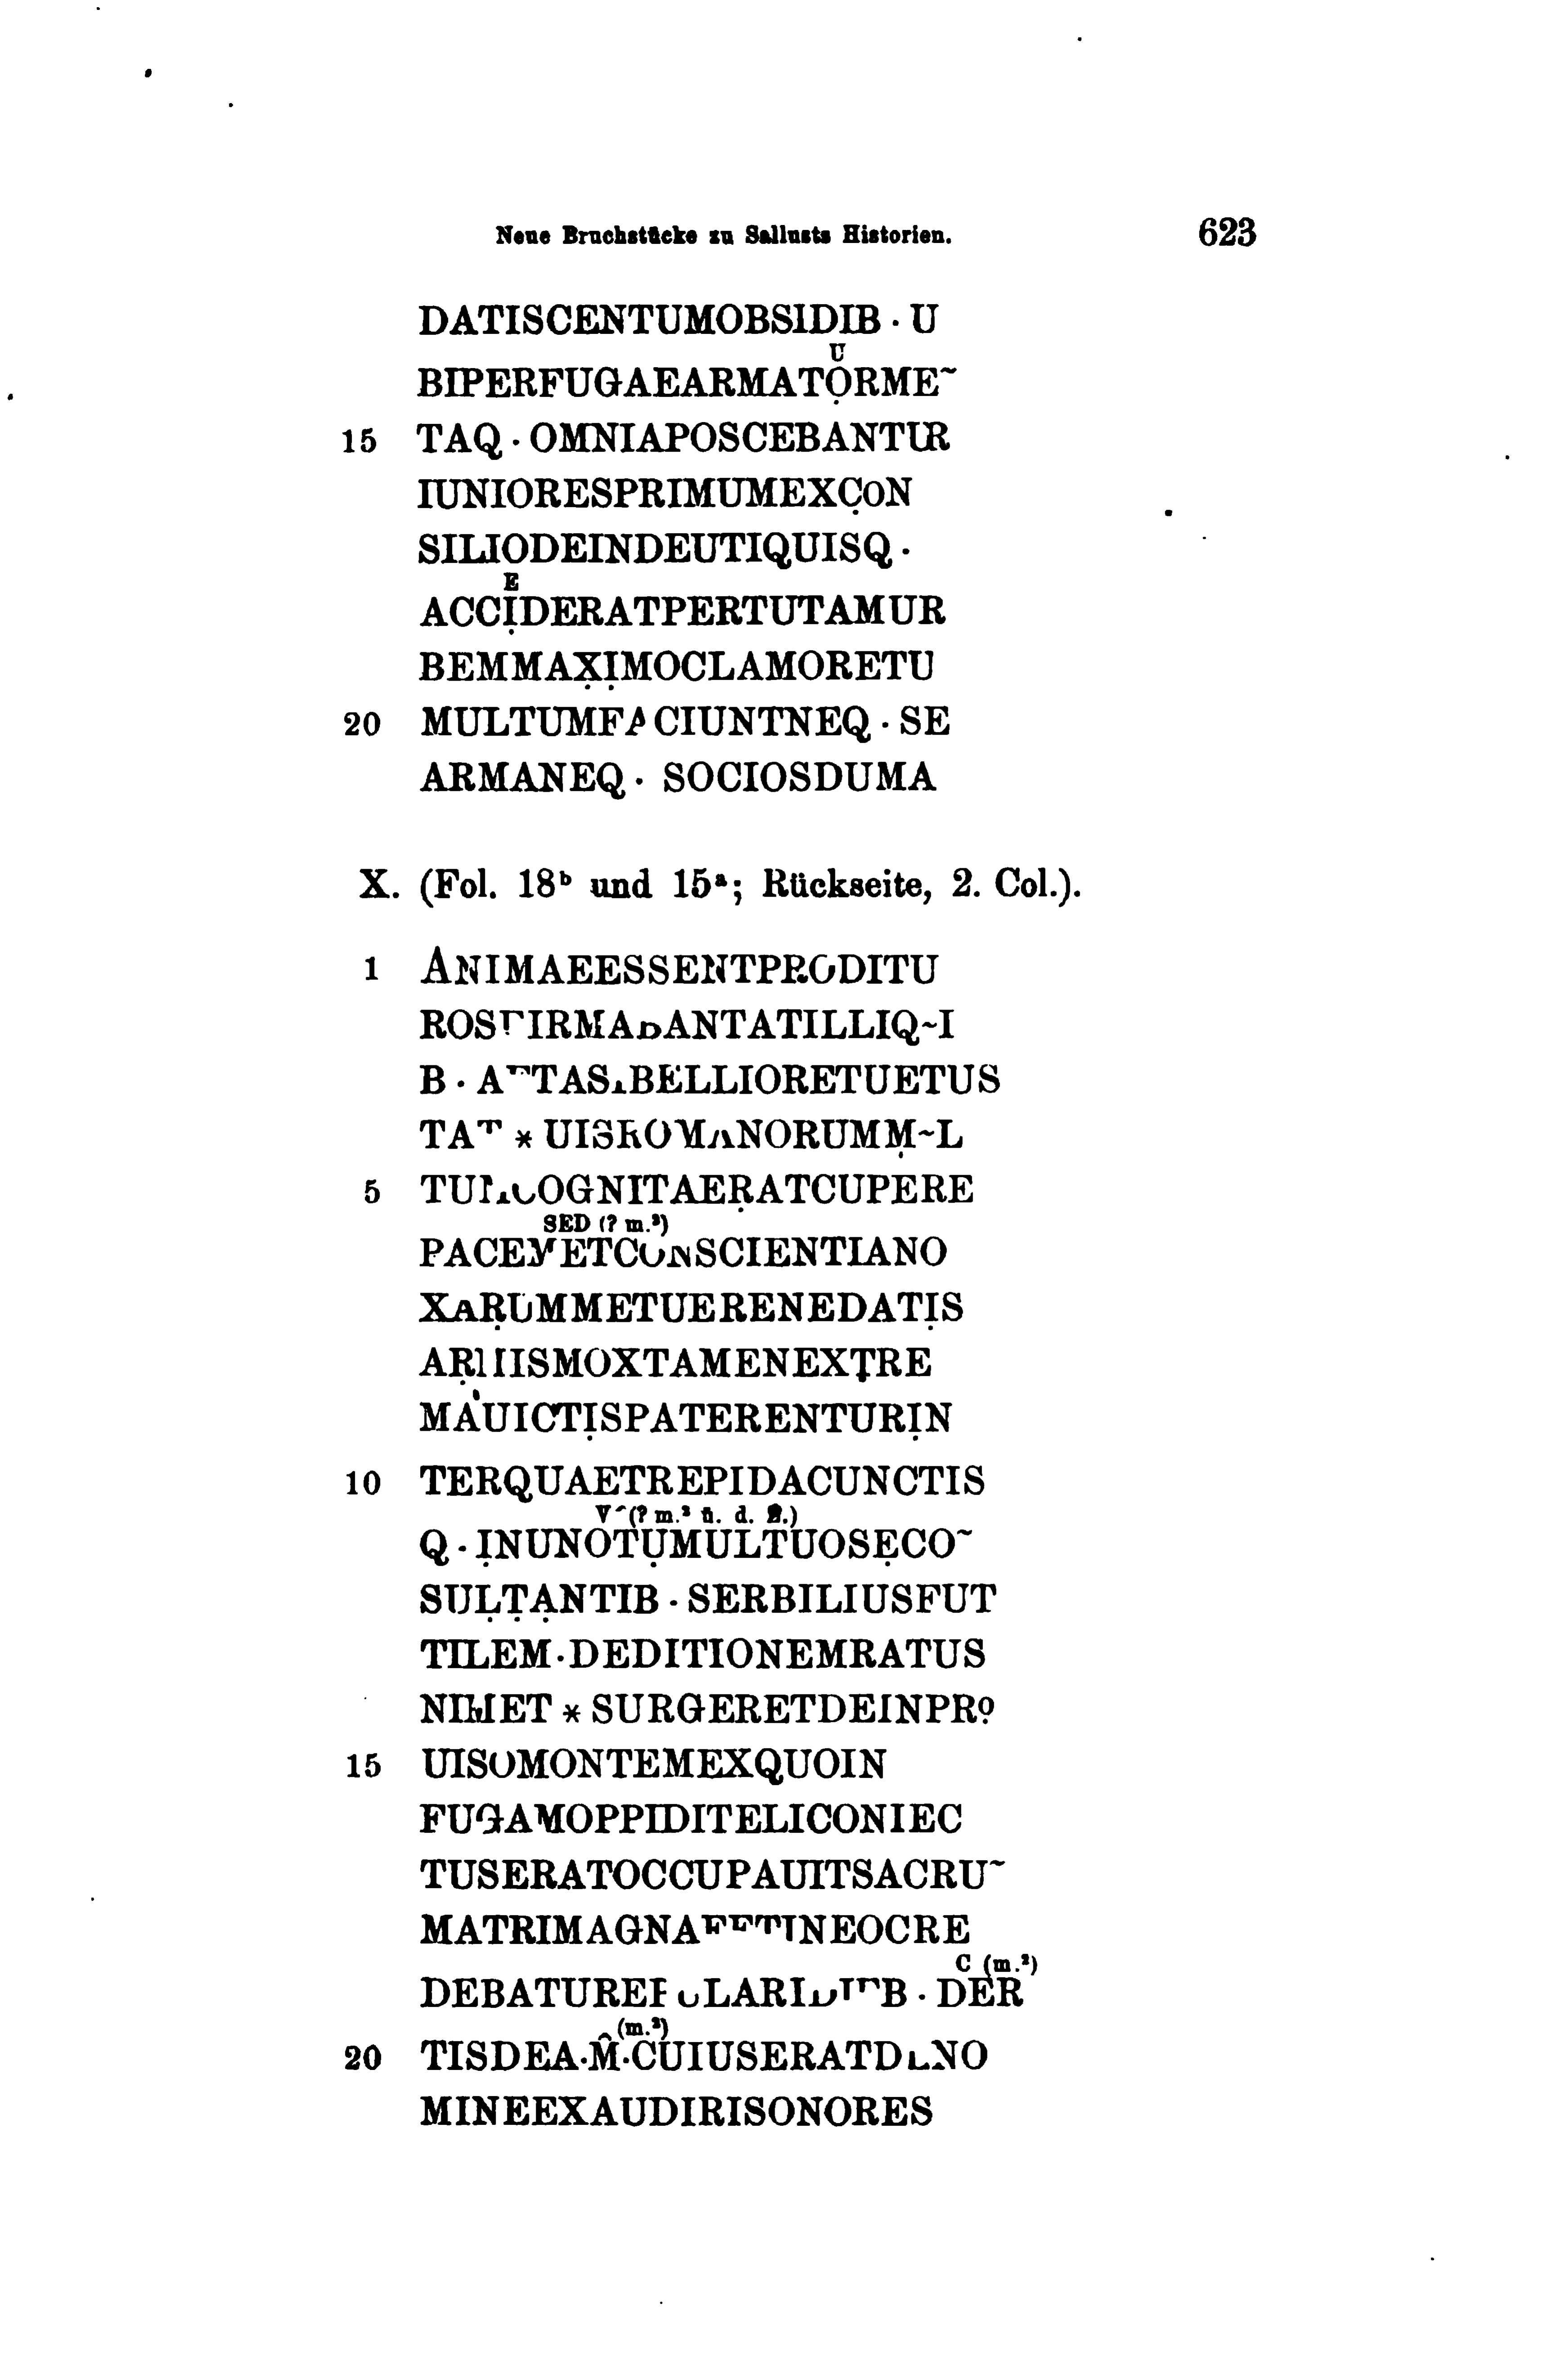 Neue Bruchstücke zu Sallusts Historien. 623
DATISCENTUMOBSIDIB · U
U
BIPERFUGAEARMATỌRME~
15 TAQ · OMNIAPOSCEBANTUR
IUNIORESPRIMUMEXC̣ON
SILIODEINDEUTIQUISQ ·
E
ACCỊDERATPERTUTAMUR
BEMMAX̣ỊMOCLAMORETU
20 MULTUMFACIUNTNEQ · SE
ARMANEQ · SOCIOSDUMA
X. (Fol. 18ᵇ und 15ᵃ; Rückseite, 2. Col.).
1 ANIMAEESSENTPRODITU
ROSFIRMABANTATILLIQ~I
B · AETASIBELLIORETUETUS
TAT * UISROMANORUMṂ~L
5 TUMCOGNITAEṚATCUPERE
SED (? m.²)
PACEMETCONSCIENTIANO
XAṚUMMETUERENEDATỊS
AṚMISMOXTAMENEXṬRE
MAUICTỊSPATERENTURỊN
10 TERQUAETREPIDACUNCTIS
V~(? m.² ü. d. Z.)
Q · ỊNUNOTỤMULTUOSẸCO~
SUḶṬẠNTIB · SERBILIUSFUT
TILEM·DEDITIONEMRATUS
NIMET * SURGERETDEINPRO
15 UISOMONTEMEXQUOIN
FUGAMOPPIDITELICONIEC
TUSERATOCCUPAUITSACRU~
MATRIMAGNAEETINEOCRE
C (m.²)
DEBATUREPULARIDIEB · DER
^ (m.²)
20 TISDEA·M·CUIUSERATDENO
MINEEXAUDIRISONORES